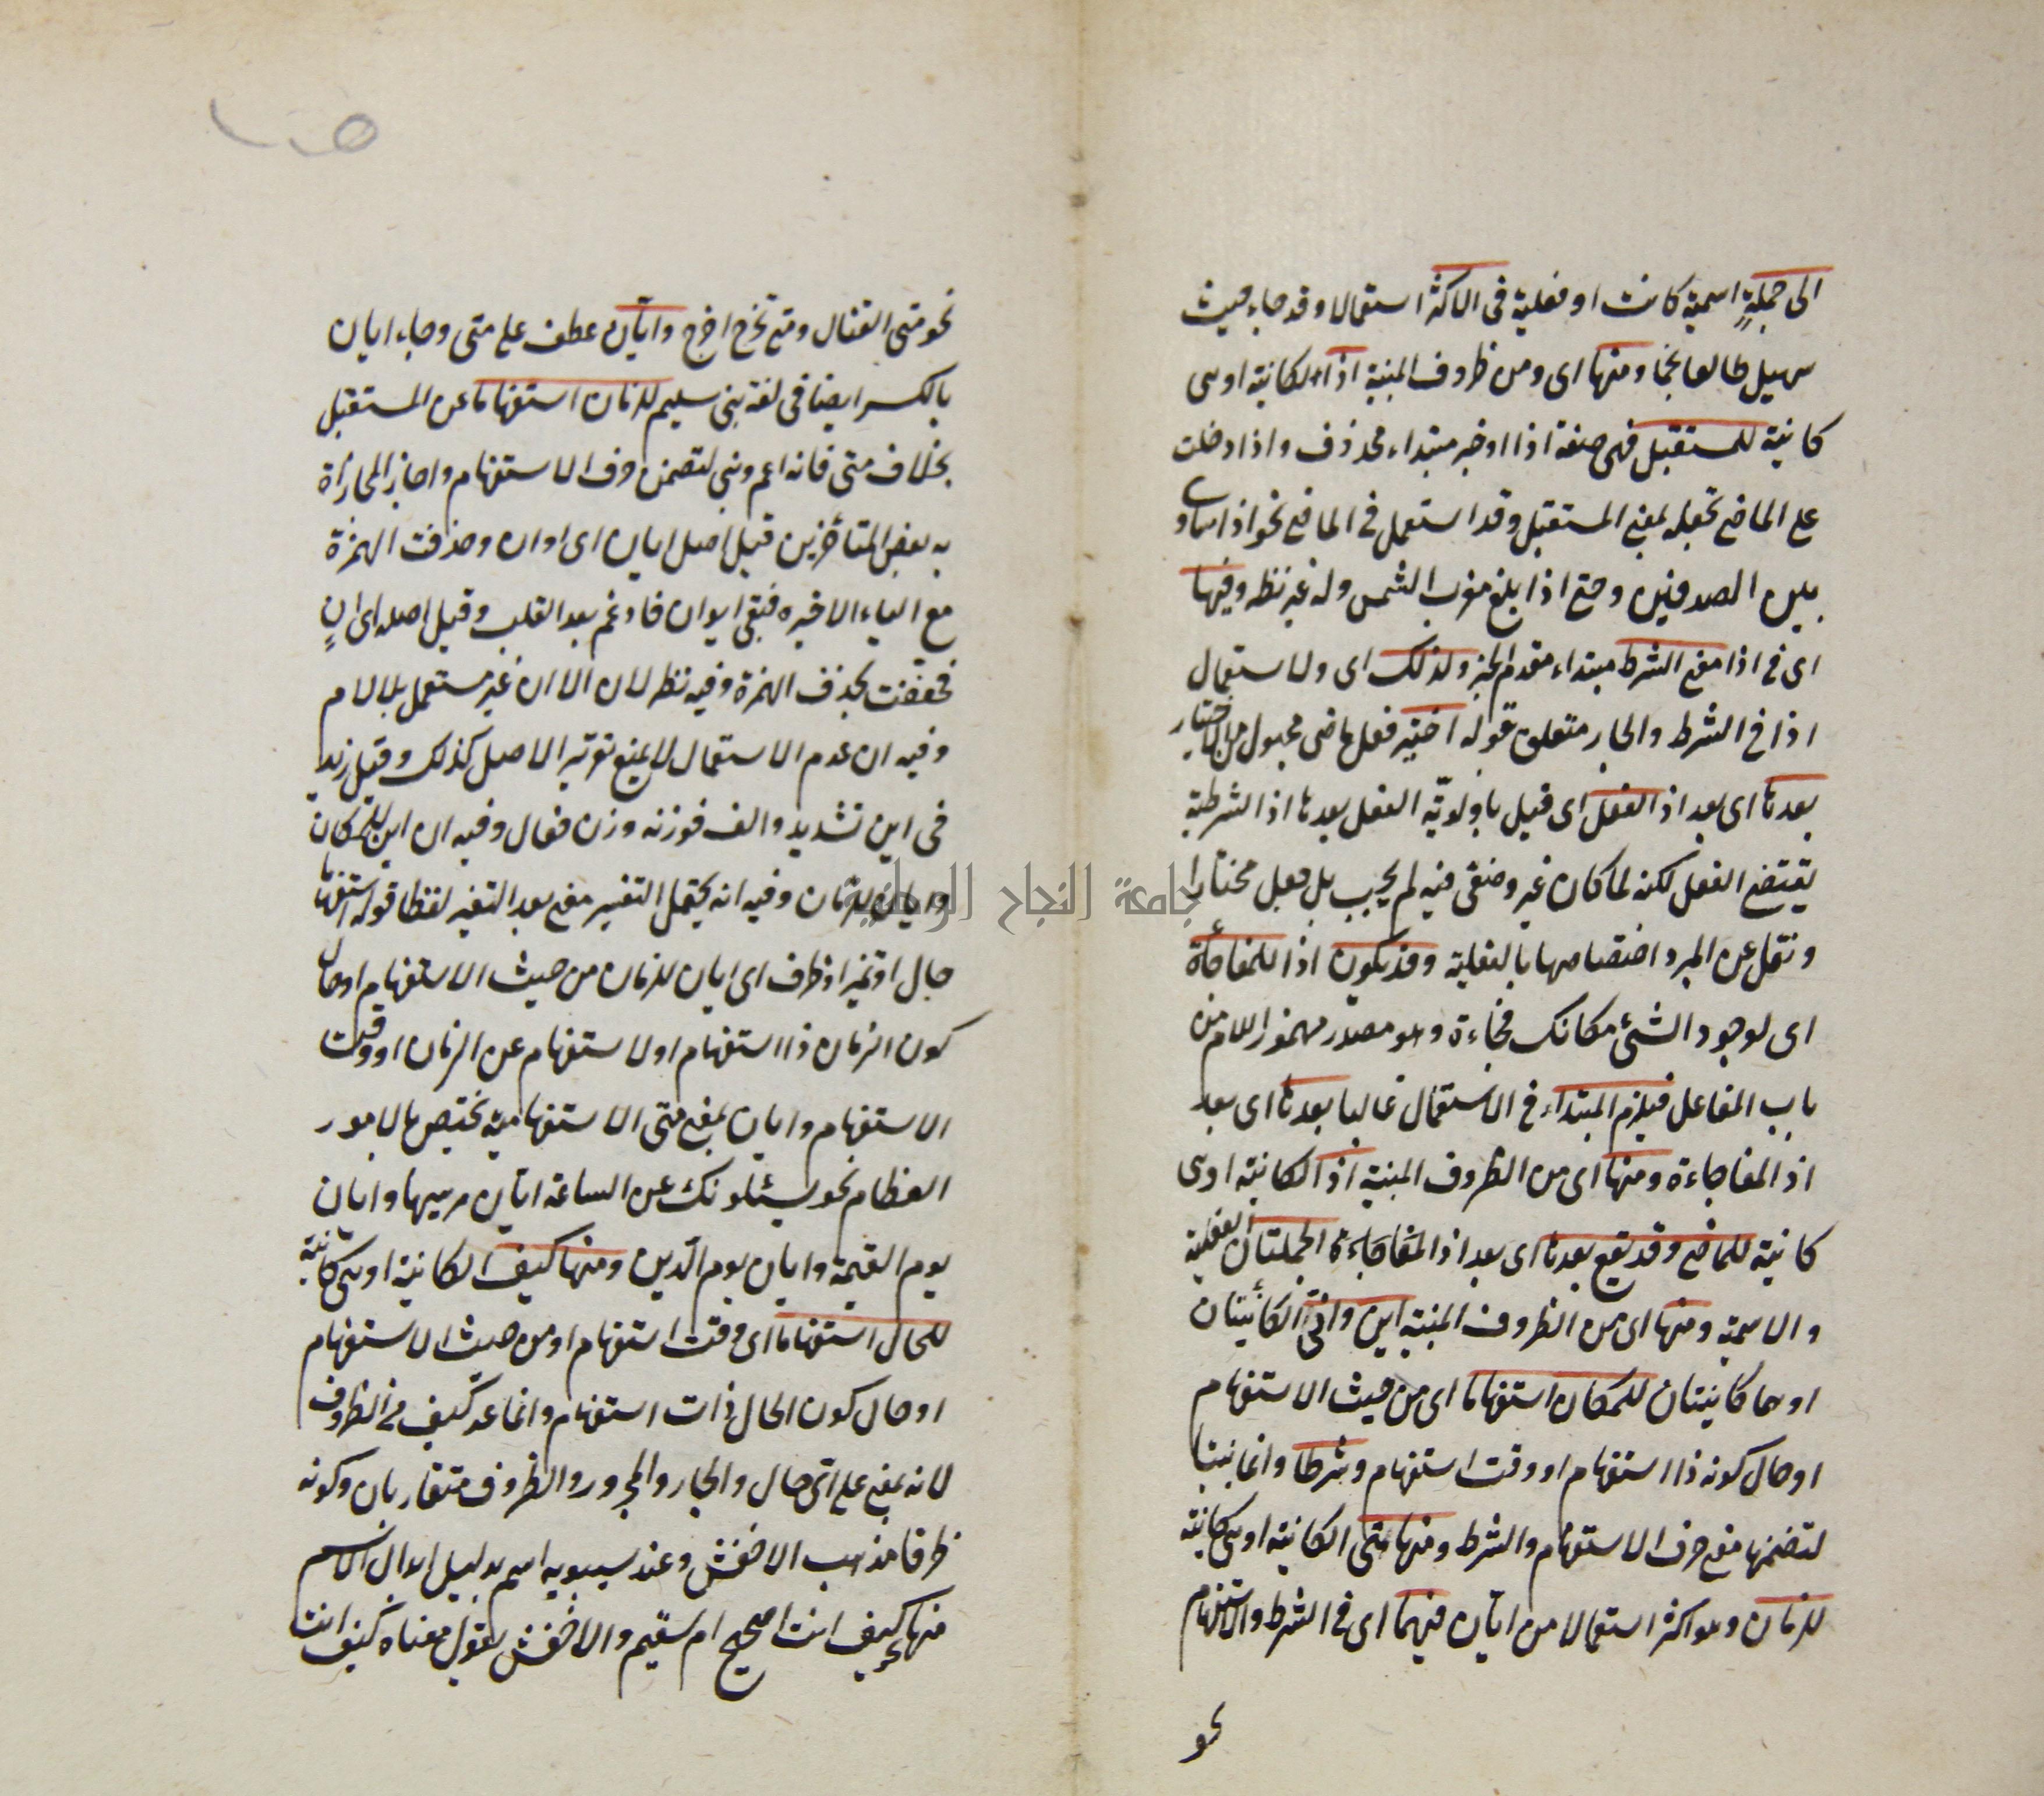 الى جملةٍ اسمية كانت او فعلية فى الاكثر استعمالا وقد جاء حيث
سهيل طالعا نجما ومنها اى ومن ظروف المبنية اذا الكانية او هى
كانية للمستقبل فهى صفة اذا او خبر مبتداء محذوف واذا دخلت
على الماضى تجعله بمعنى المستقبل وقد استعمل فى الماضى نحو اذا ساوى
بين الصدفين وحتى اذا بلغ مغرب الشمس وله غير نظر وفيها
اى فى اذا معنى الشرط مبتداء مقدم الخبر ولذلك اى ولاستعمال
اذا فى الشرط والجار متعلق قوله اختير فعل ماضى مجهول من الاختيار
بعدها اى بعد اذا الفعل اى قيل باولويّة الفعل بعدها اذ الشرطية
يقتضى الفعل لكنه لما كان غير وضعى فيه لم يجب بل جعل مختارا
ونقل عن المبرد اختصاصها بالفعلية وقد يكون اذا للمفاجأة
اى لوجود الشئ مكانك فجاءة وهو مصدر مهموز اللام من
باب المفاعل فيلزم المبتداء فى الاستعمال غالبا بعدها اى بعد
اذ المفاجاءة ومنها اى من الظروف المبنية اذ الكانية او هى
كانية للماضى وقد تقع بعدها اى بعد اذ المفاجاءة الجملتان الفعلية
والاسمية ومنها اى من الظروف المبنية اين وانّى الكائنتان
او هما كانيتان للمكان استفهاما اى من حيث الاستفهام
او حال كونه ذا استفهام او وقت استفهام وشرطا وانما بنيتا
لتضمنها معنى حرف الاستفهام والشرط ومنها متى الكانية او هى كانية
للزمان وهو اكثر استعمالا من ايّان فيهما اى فى الشرط والاستفهام
نحو
نحو متى القتال ومتى تخرج اخرج وايّان عطف على متى وجاء ايان
بالكسر ايضا فى لغة بنى سليم للزمان استفهاما عن المستقبل
بخلاف متى فانه اعم وبنى لتضمن حرف الاستفهام واجاز المجازاة
به بعض المتأخرين قيل اصل ايان اى اوان وحذفت الهمزة
مع الياء الاخيره فبقى ايوان فادغم بعد القلب وقيل اصله اى انٍ
فخففت بحذف الهمزة وفيه نظر لان الاان غير مستعمل بلا لام
وفيه ان عدم الاستعمال لا يمنع الاصل كذلك وقيل زيد
فى اين تشديد والف فوزنه وزن فعال وفيه ان اين للمكان
وايان للزمان وفيه انه يحتمل التغيير معنى بعد التغير لفظا قوله استفهاما
حال او تميز او ظرف اى ايان للزمان من حيث الاستفهام او حال
كون الزمان ذا استفهام او لاستفهام عن الزمان او وقت
الاستفهام وايان بمعنى متى الاستفهامية تختص بالامور
العظام نحو يسئلونك عن الساعة ايّان مرسيها وايان
يوم القيمة وايان يوم الدّين ومنها كيف الكانية او هى كانية
للحال استفهاما اى وقت استفهام او من حيث الاستفهام
او حال كون الحال ذات استفهام وانما عدّ كيف فى الظروف
لانه بمعنى على اىّ حال والجار والمجرور والظروف متقاربان وكونه
ظرفا مذهب الاخفش وعند سيبويه اسم بدليل ابدال الاسم
منها نحو كيف انت اصحيح ام سقيم والاخفش يقول معناه كيف انت
جامعة النجاح الوطنية